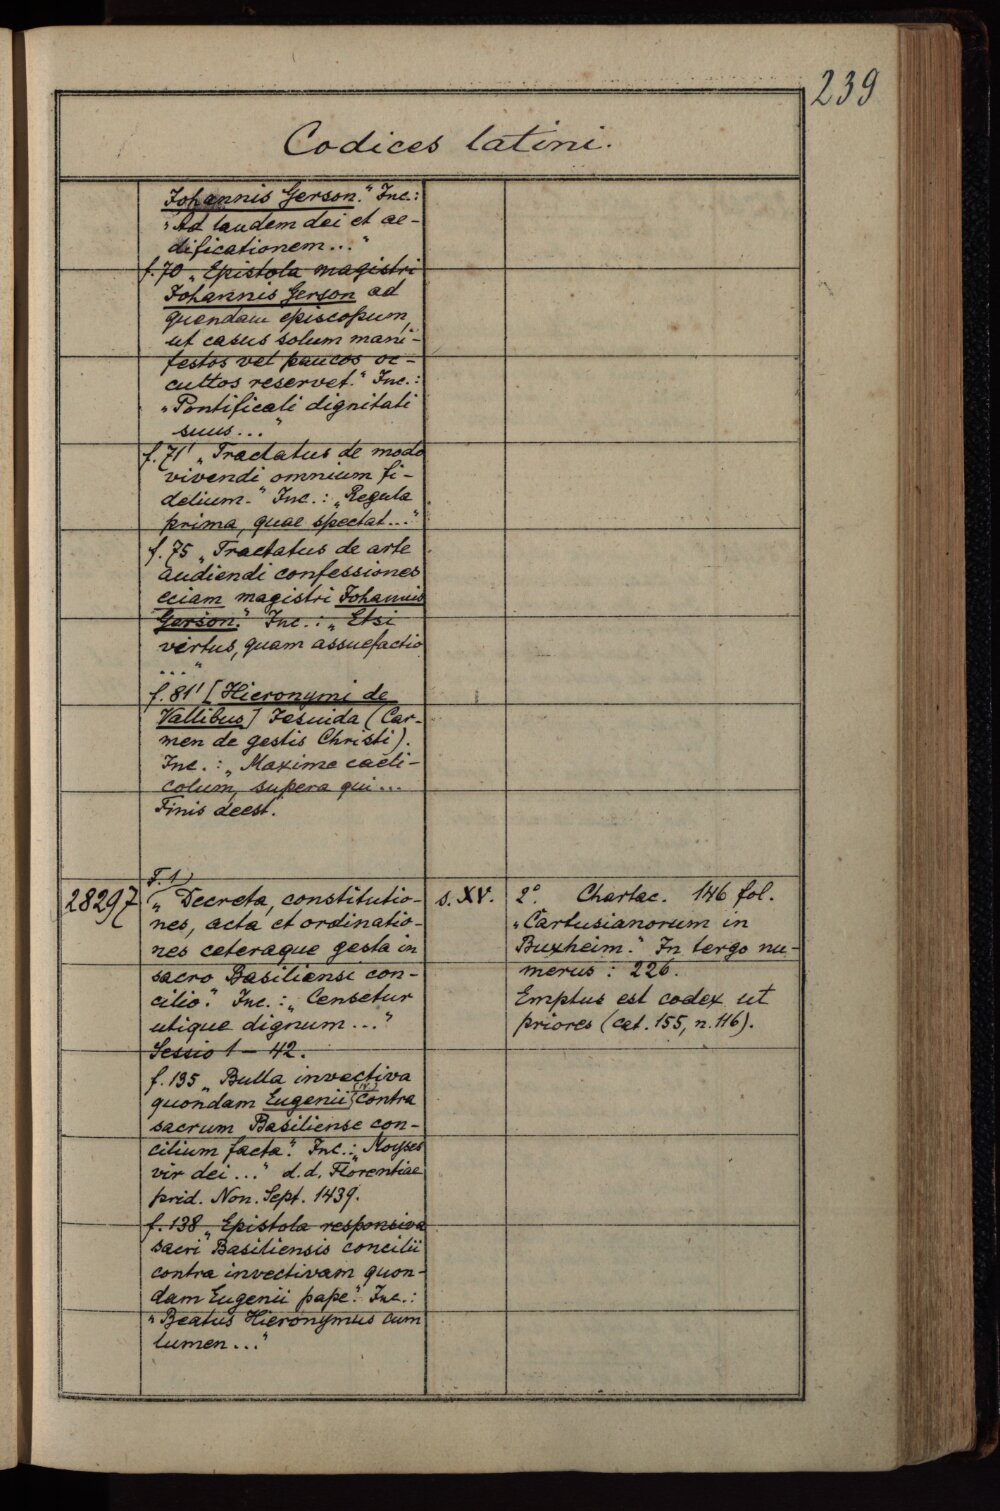 239
Codices latini.
Johannis Gerson." Inc.:
„Ad laudem dei et ae-
dificationem..."
f. 70 „Epistola magistri
Johannis Gerson ad
quendam episcopum,
ut casus solum mani-
festos vel paucos oc-
cultos reservet." Inc.:
„Pontificali dignitati
suus..."
f. 71' „Tractatus de modo
vivendi omnium fi-
delium." Inc.: „Regula
prima, quae spectat..."
f. 75 „Tractatus de arte
audiendi confessiones
eciam magistri Johannis
Gerson." Inc.: „Etsi
virtus, quam assuefactio
..."
f. 81' [Hieronymi de
Vallibus] Jesuida (Car-
men de gestis Christi).
Inc.: „Maxime caeli-
colum, supera qui...
Finis deest.
28297
F. 1)
„Decreta, constitutio-
nes, acta et ordinatio-
nes ceteraque gesta in
sacro Basiliensi con-
cilio." Inc.: „Censetur
utique dignum..."
Sessio 1 – 42.
f. 135 „Bulla invectiva
quondam Eugenii (IV.) contra
sacrum Basiliense con-
cilium facta." Inc.: „Moyses
vir dei..." d.d. Florentiae
prid. Non. Sept. 1439.
f. 138 „Epistola responsiva
sacri Basiliensis concilii
contra invectivam quon-
dam Eugenii pape." Inc.:
„Beatus Hieronymus cum
lumen..."
s. XV.
2° Chartac. 146 fol.
„Cartusianorum in
Buxheim." In tergo nu-
merus: 226.
Emptus est codex ut
priores (cat. 155, n. 116).